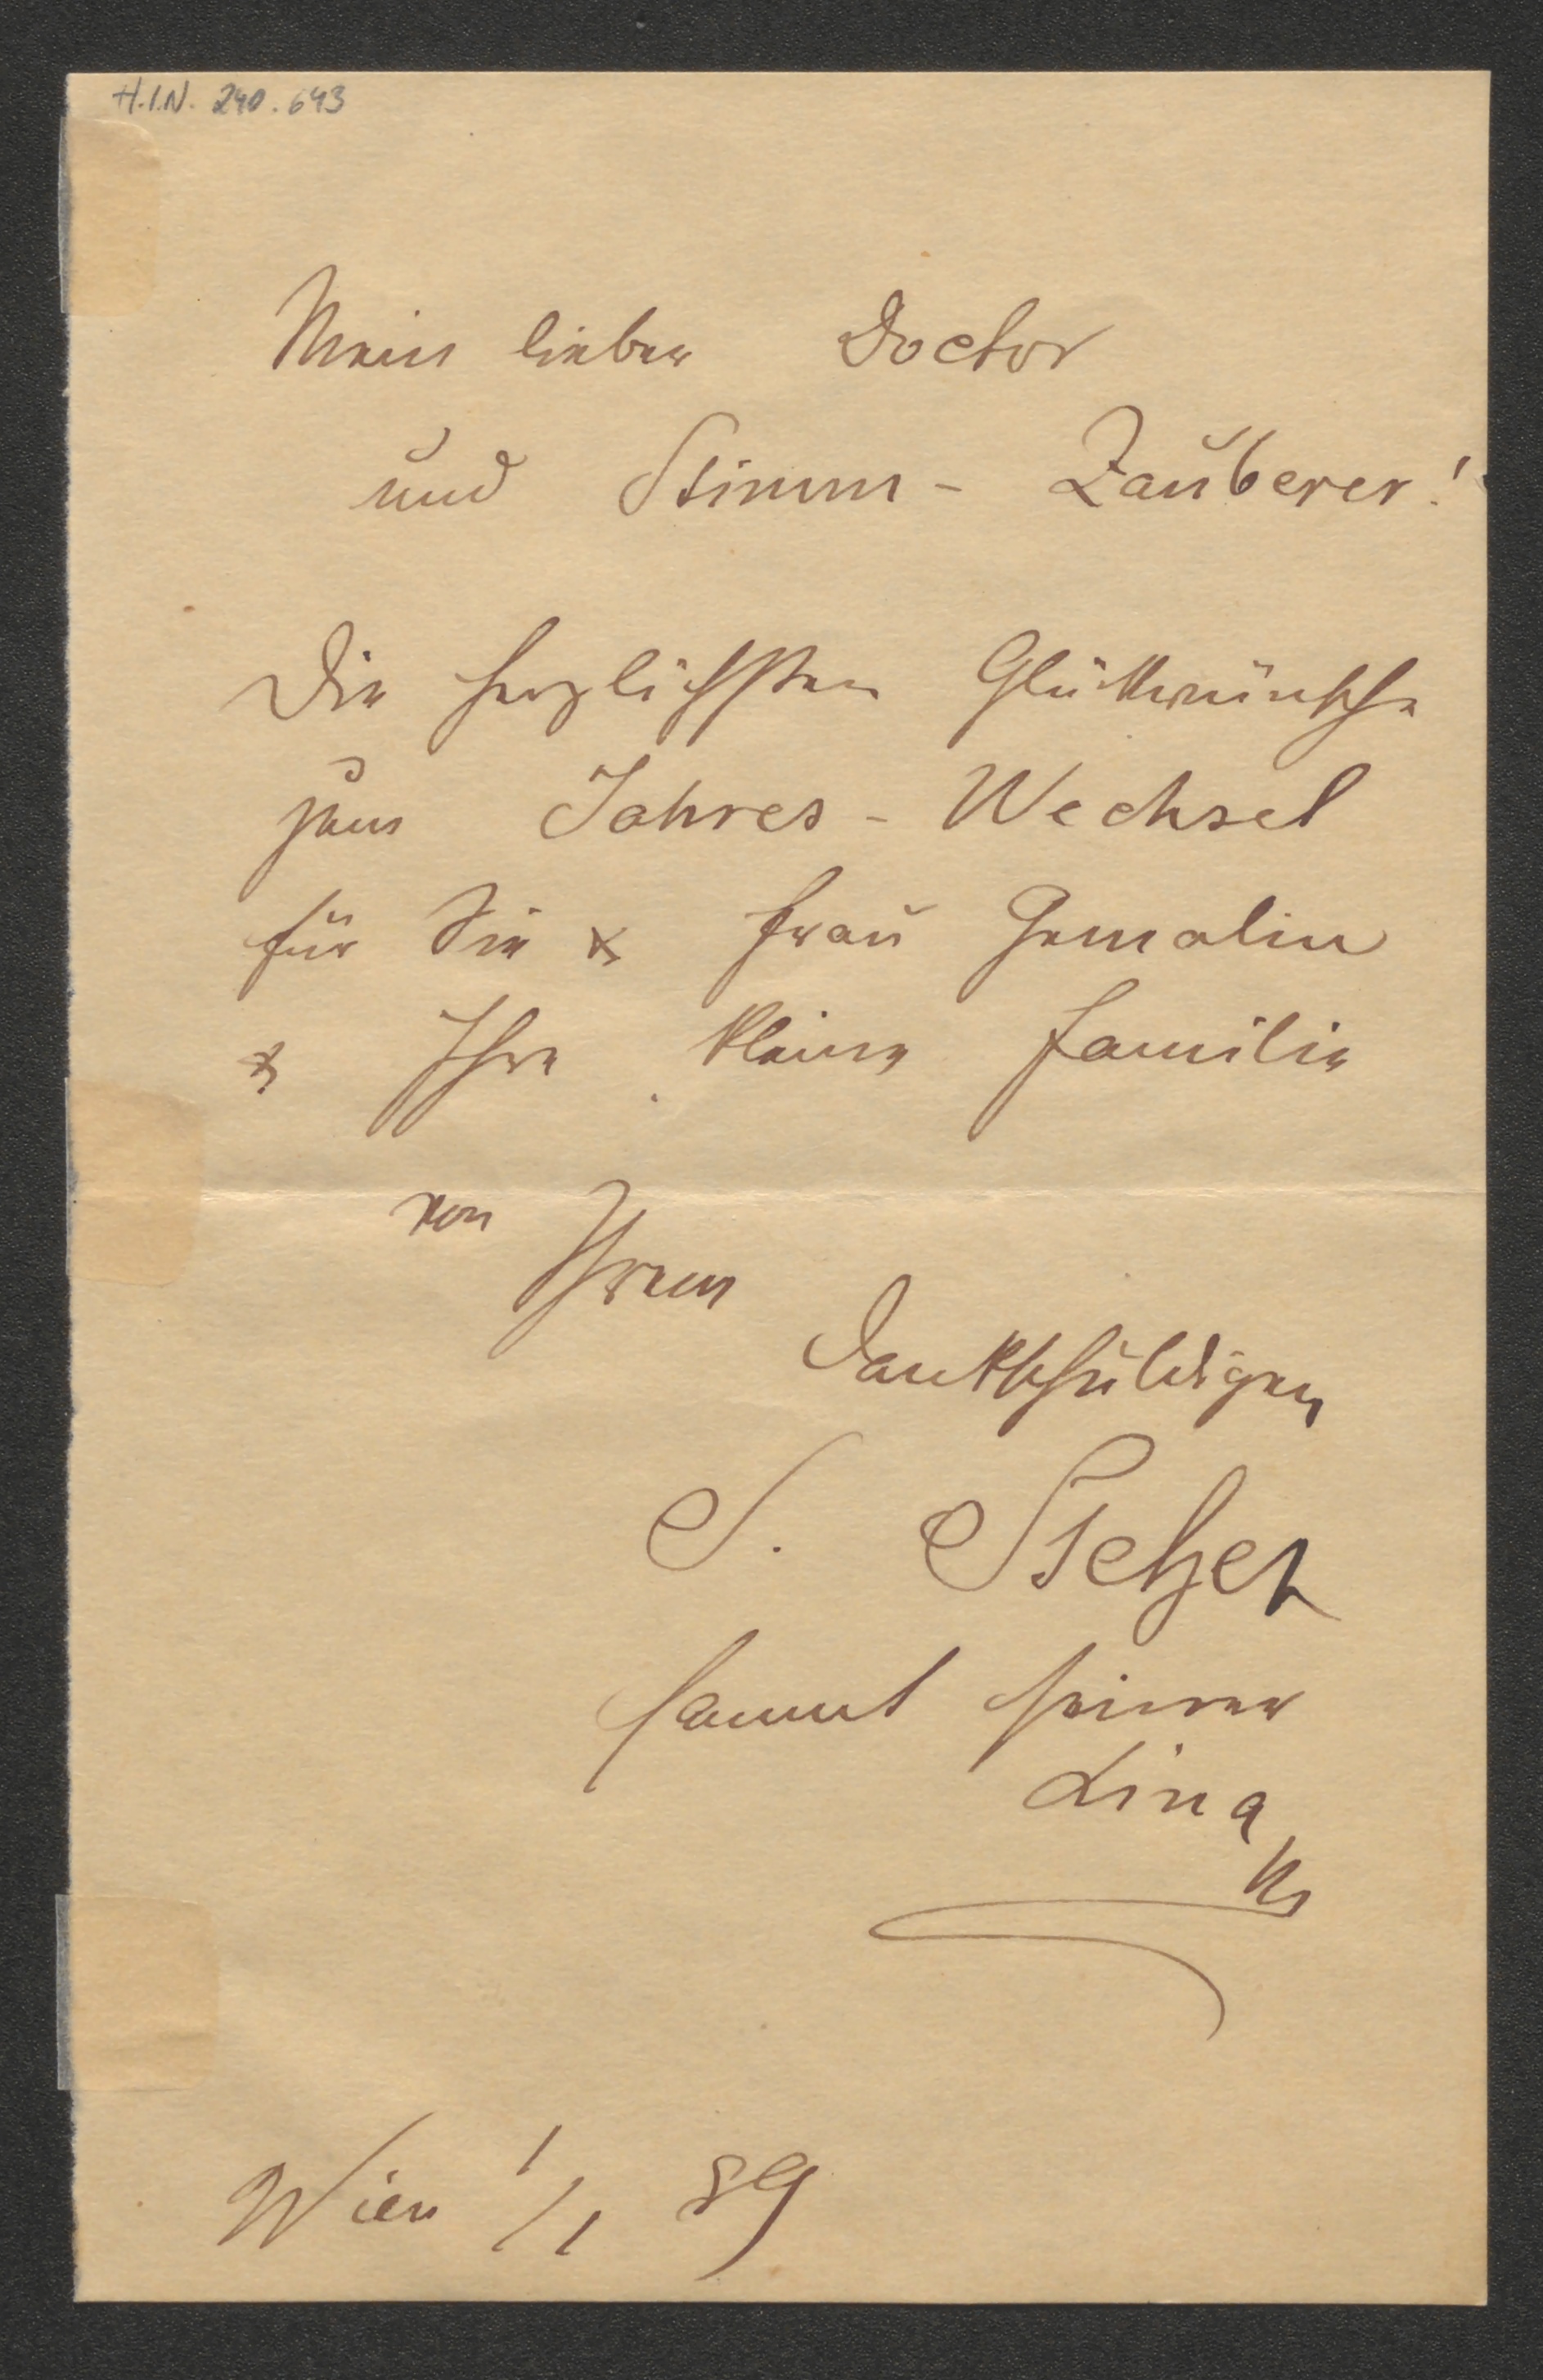 H.I.N. 240.643
Mein lieber Doctor
und Stimm- Zauberer!
Die herzlichsten Glückwünsche
zum Jahres- Wechsel
für Sie & Frau Gemalin
& Ihre kleine Familie
von Ihrem
dankschuldigen
S. Stelzer
sammt seiner
Lina
Wien 1/1 89